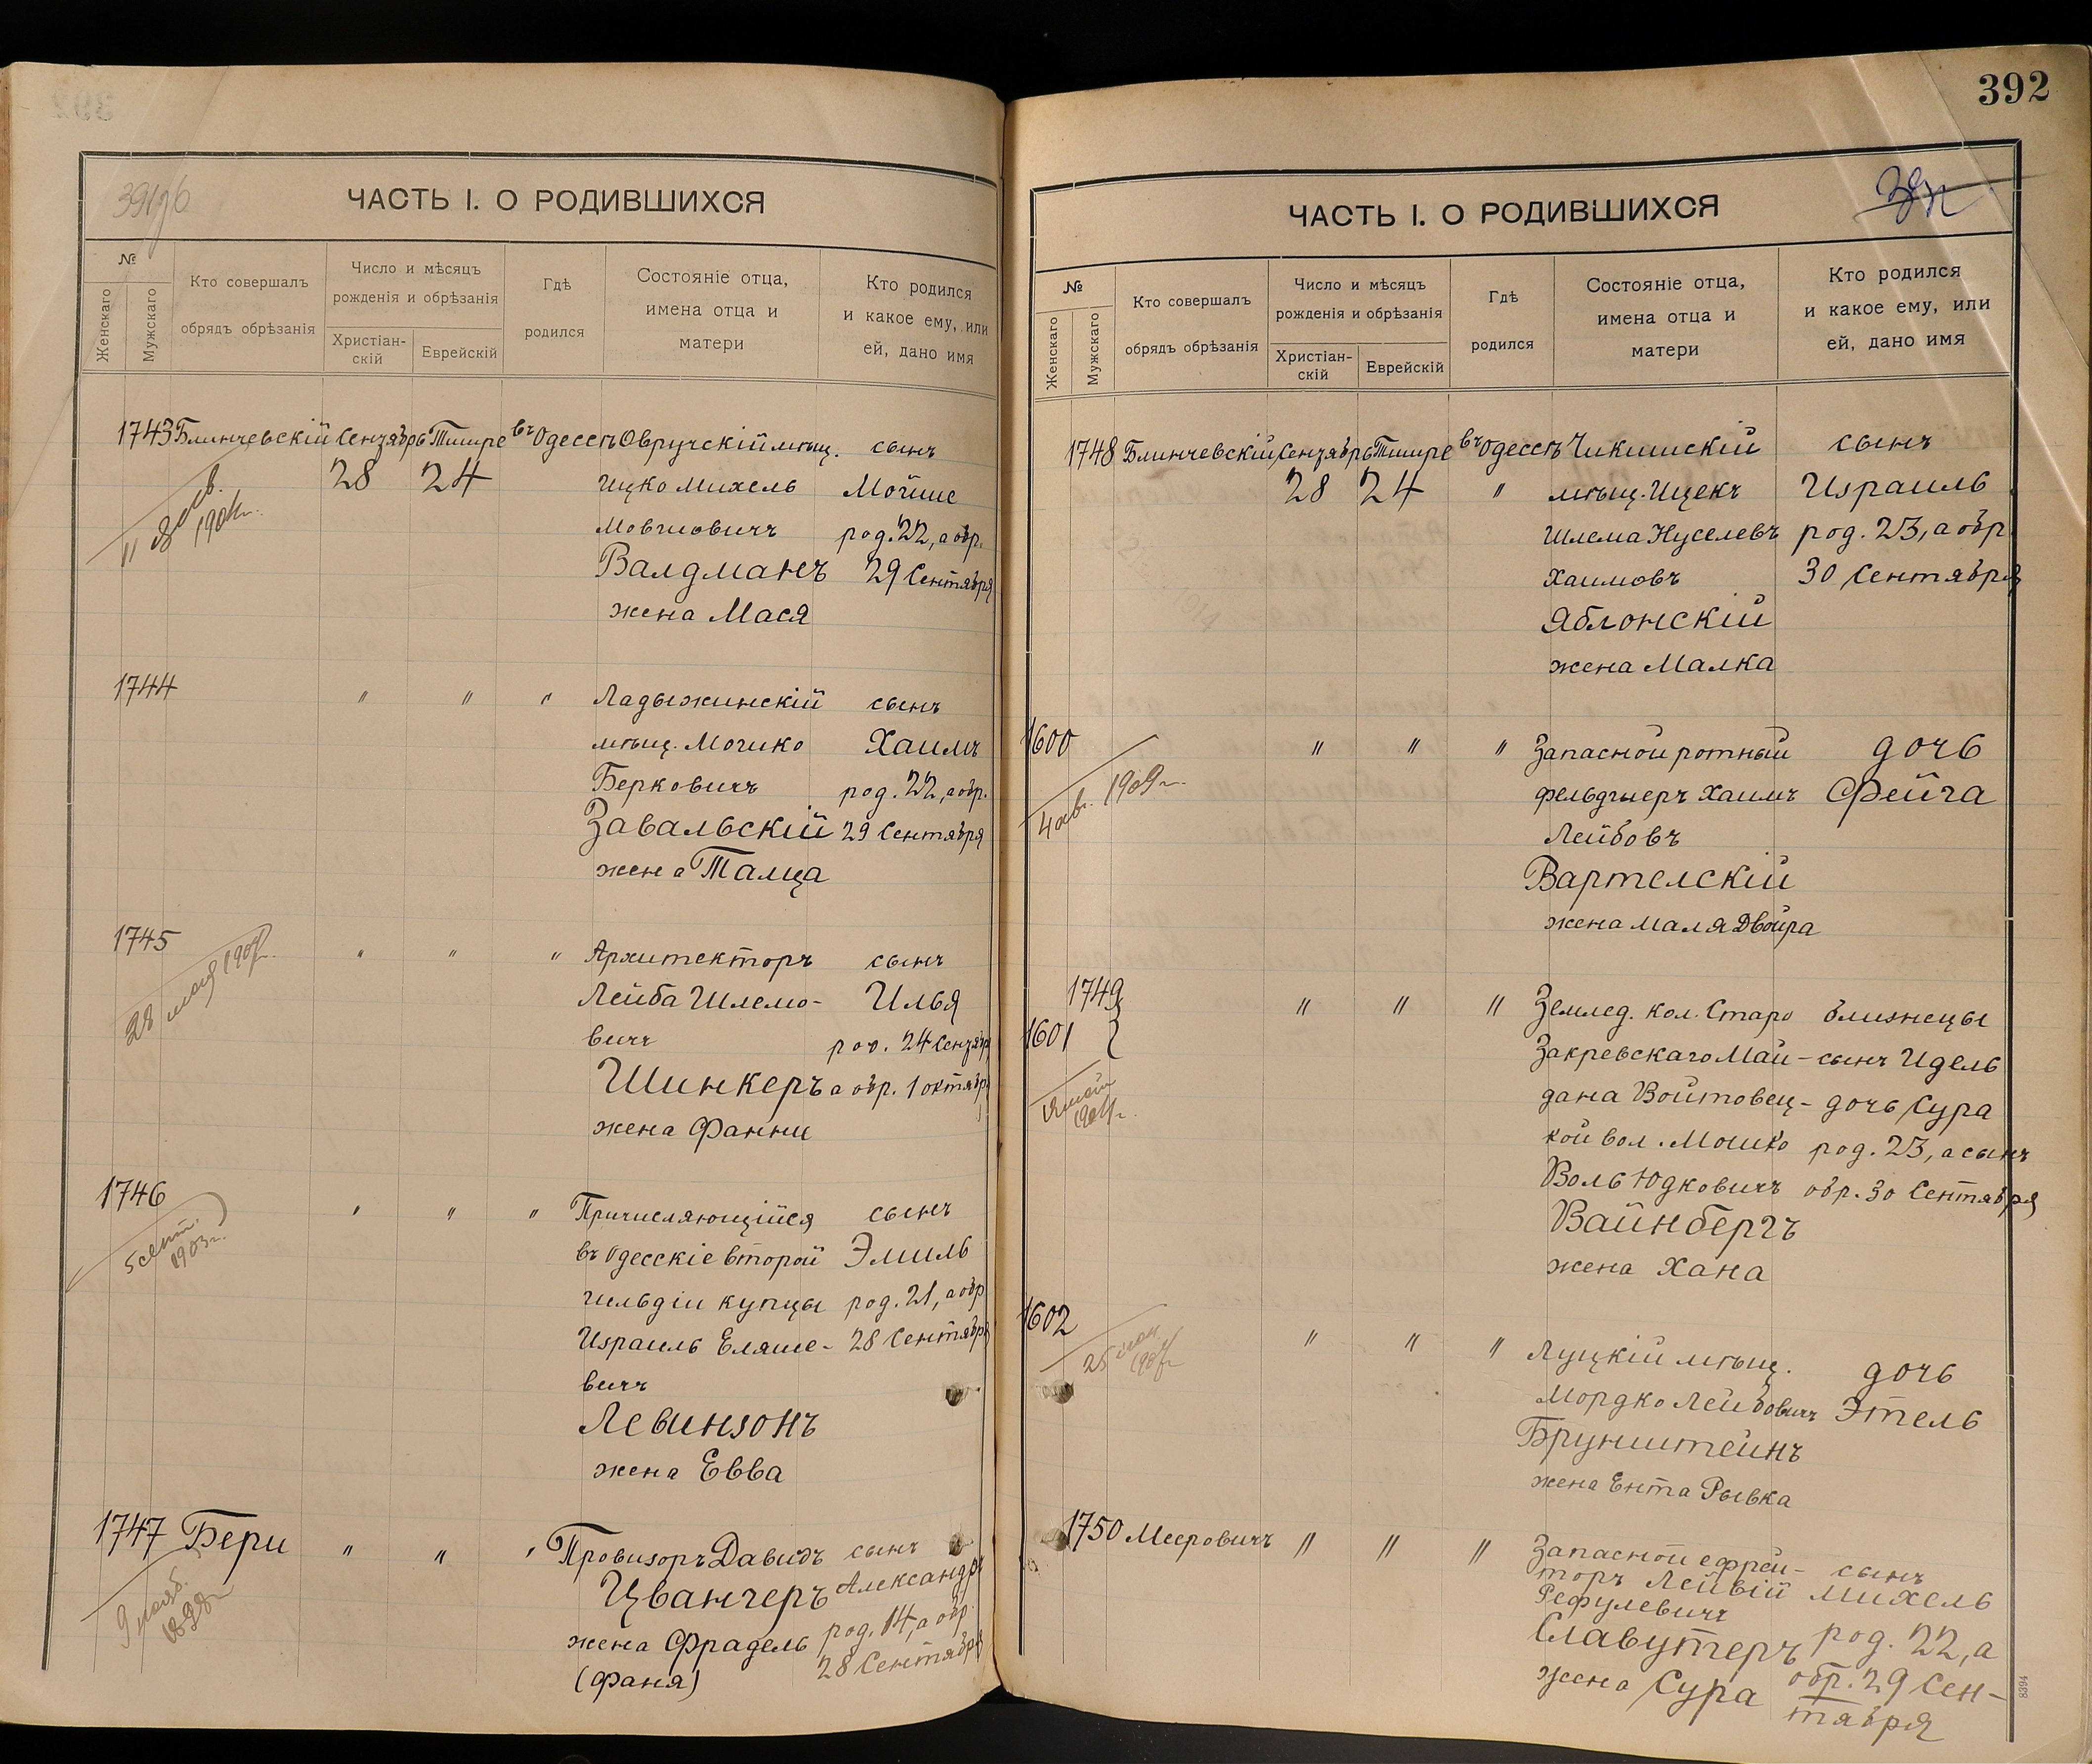 392
391 об
ЧАСТЬ I. О РОДИВШИХСЯ
№
Женскаго
Мужскаго
Кто совершалъ
обрядъ обрѣзанія
Число и мѣсяцъ
рожденія и обрѣзанія
Христіан-
скій
Еврейскій
Гдѣ
родился
Состояніе отца,
имена отца и
матери
Кто родился
и какое ему, или
ей, дано имя
1743 Блинчевскій Сентябрь Тишре въ Одессѣ Овручскій мѣщ. сынъ
28 24 Ицко Михель Мойше
Мовшовичъ род. 22, а обр.
Валдманъ 29 Сентября
жена Мася
1744 " " " Ладыжинскій сынъ
мѣщ. Мошко Хаимъ
Берковичъ род. 22, а обр.
Завальскій 29 Сентября
жена Талца
1745 " " " Архитекторъ сынъ
28 мая 190
Лейба Шлемо- Илья
вичъ род. 24 Сентябр
Шинкеръ а обр. 1 октябр
жена Фанни
1746 " " " Причисляющійся сынъ
5 сент.
1903 г.
въ Одесскіе второй Эмиль
гильдіи купцы род. 21, а обр
Израиль Еляше- 28 Сентября
вичъ
Левинзонъ
жена Евва
1747 Бери " " " Провизоръ Давидъ сынъ
9 нояб.
1898 г
Цвангеръ Александръ
жена Фрадель род. 14, а обр.
(Фаня) 28 Сентября
392
ЧАСТЬ I. О РОДИВШИХСЯ
№
Женскаго
Мужскаго
Кто совершалъ
обрядъ обрѣзанія
Число и мѣсяцъ
рожденія и обрѣзанія
Христіан-
скій
Еврейскій
Гдѣ
родился
Состояніе отца,
имена отца и
матери
Кто родился
и какое ему, или
ей, дано имя
1748 Блинчевскій Сентябрь Тишре въ Одессѣ Чикишскій сынъ
28 24 " мѣщ. Ицекъ Израиль
Шлема Нуселевъ род. 23, а обр.
Хаимовъ 30 Сентября
Яблонскій
жена Малка
1600 " " " Запасной ротный дочь
4 ав. 1909 г.
фельдшеръ Хаимъ Фейга
Лейбовъ
Вартелскій
жена Маля Двойра
1749 " " " Землед. кол. Старо близнецы
1601
Закревскаго Май- сынъ Идель
дана Войтовец- дочь Сура
кой вол. Мошко род. 23, а сынъ
Воль Юдковичъ обр. 30 Сентября
Вайнбергъ
жена Хана
1602 " " " Луцкій мѣщ. дочь
Мордко Лейбовичъ Этель
Брунштейнъ
жена Ента Рывка
1750 Мееровичъ " " " Запасной ефрей- сынъ
торъ Лейвій Михель
Рефулевичъ
Славутеръ род. 22, а
жена Сура обр. 29 Сен-
тября
8394